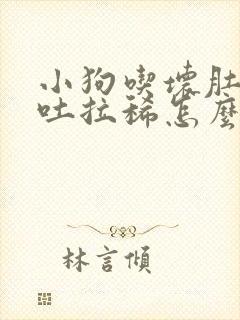 小狗喫壞肚
吐拉稀怎麼
林言傾